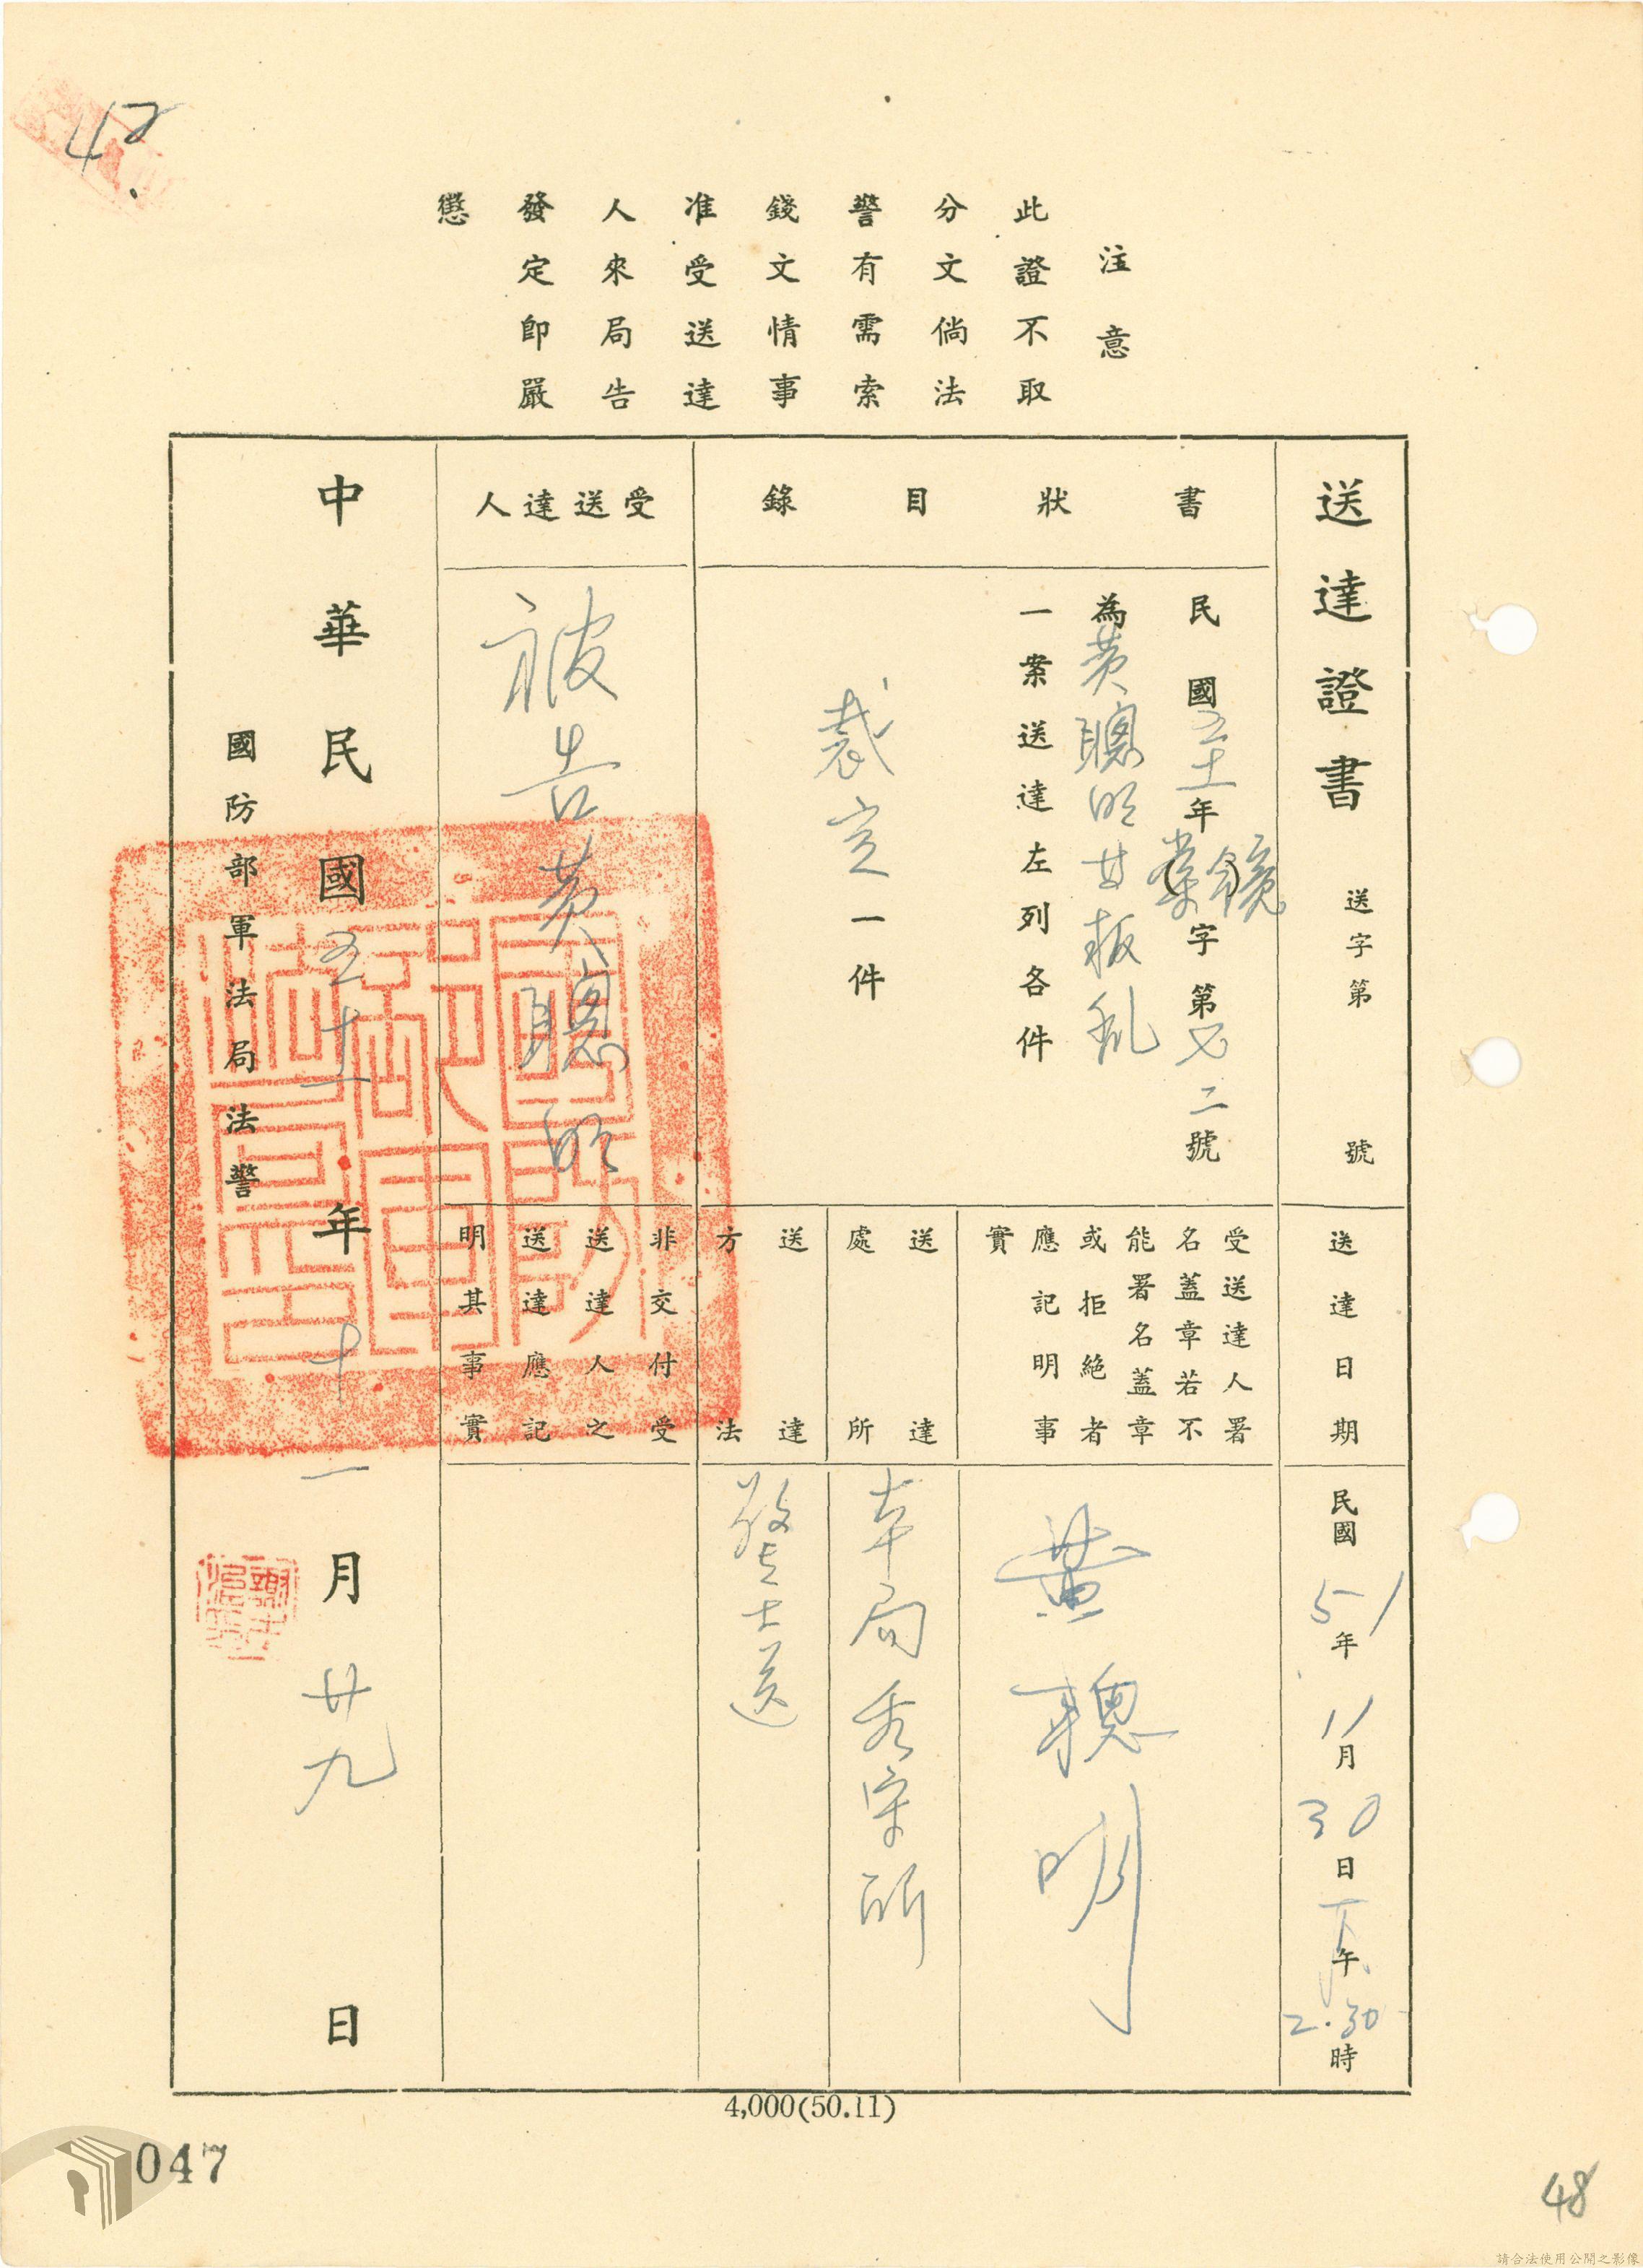 42.
注意
此證不取
分文倘法
警有需索
錢文情事
准受送達
人來局告
發定即嚴
懲
送達證書 送字第 號
書狀目錄
民國五十一年(鏡/棠)字第七二號
為黃聰明甘叛亂
一案送達左列各件
裁定一件
受送達人
被告黃聰明
送達日期
民國51年11月30日下午2.30時
受送達人署
名蓋章若不
能署名蓋章
或拒絕者
應記明事
實
黃聰明
送達
處所
本局看守所
送達
方法
警士送
非交付受
送達人之
送達應記
明其事實
中華民國五十一年十一月廿九日
國防部軍法局法警
4,000(50.11)
047
48
請合法使用公開之影像